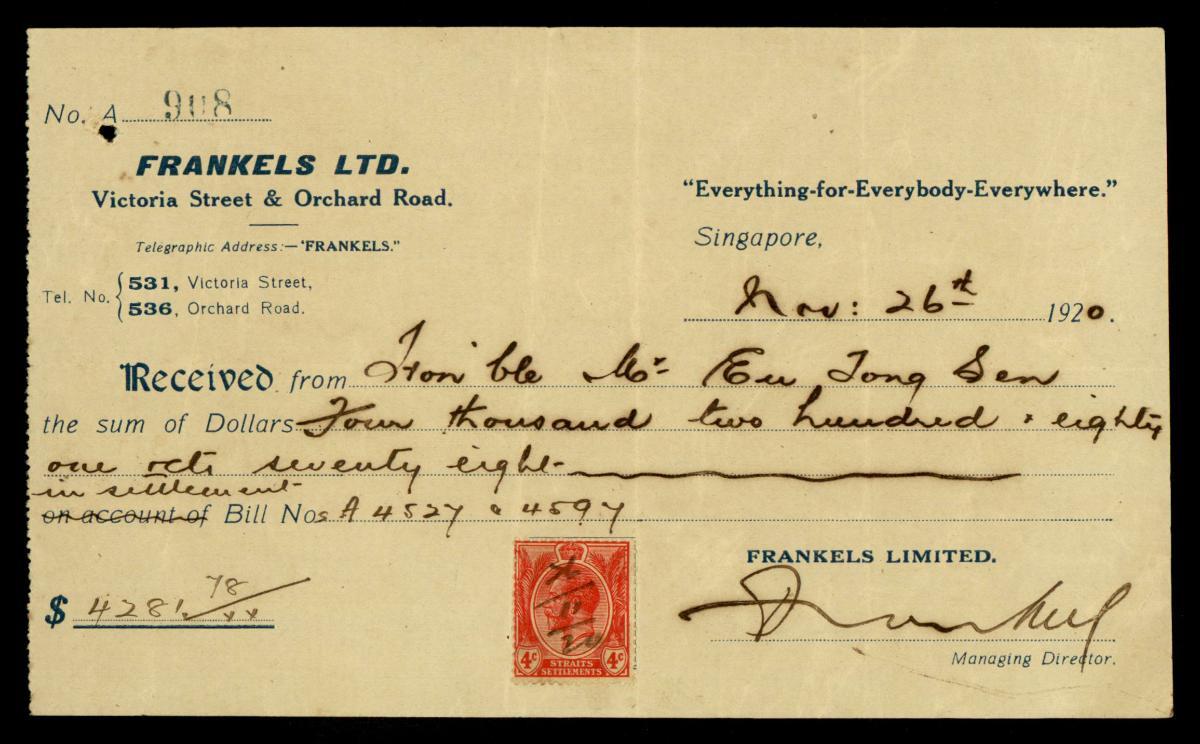 No. A 908
FRANKELS LTD.
Victoria Street & Orchard Road.
Telegraphic Address:—'FRANKELS."
Tel. No. 531, Victoria Street,
536, Orchard Road.
"Everything-for-Everybody-Everywhere."
Singapore,
Nov: 26th 1920.
Received from Hon'ble Mr Eu Tong Sen
the sum of Dollars Four thousand two hundred & eighty
one & cts seventy eight
in settlement
on account of Bill Nos A 4527 & 4597
FRANKELS LIMITED.
$ 4281. 78/xx
26/11/20
4c STRAITS SETTLEMENTS 4c
Frankel
Managing Director.